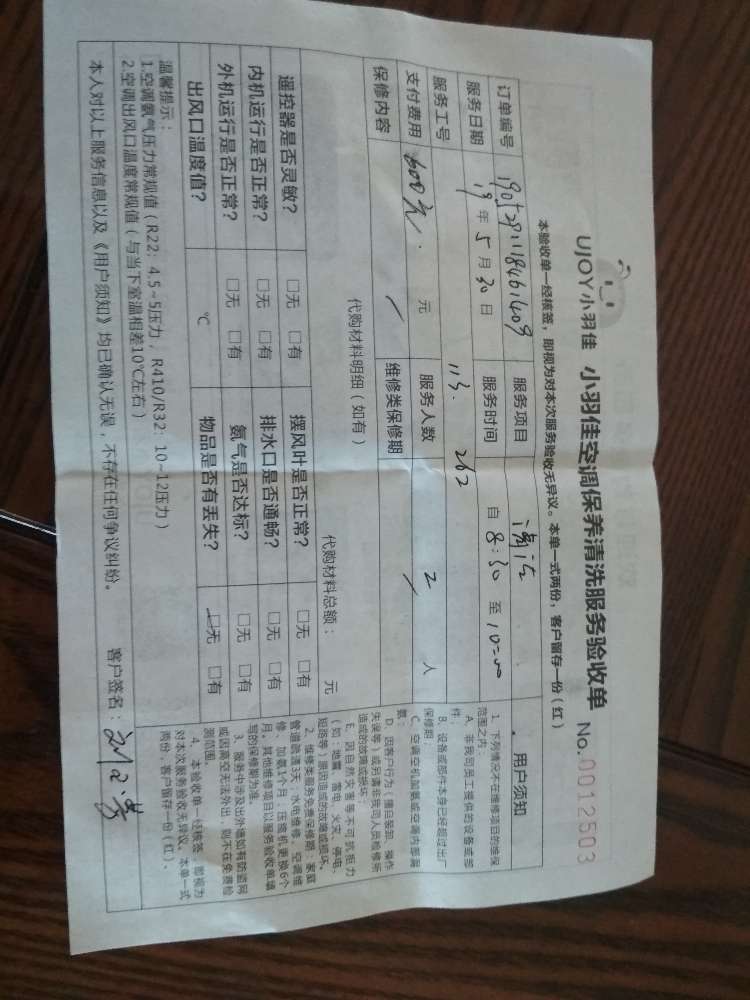 UJOY小羽佳 小羽佳空调保养清洗服务验收单 No.0012503
本验收单一经核签，即视为对本次服务验收无异议。本单一式两份，客户留存一份(红)
订单编号 服务项目 清洁
服务日期 19年5月30日 服务时间 自8:30至10:00
服务工号 113. 262
支付费用 600元. 元 服务人数 2 人
保修内容 / 维修类保修期 /
代购材料明细（如有） 代购材料总额： 元
遥控器是否灵敏？ □无 □有 摆风叶是否正常？ □无 □有
内机运行是否正常？ □无 □有 排水口是否通畅？ □无 □有
外机运行是否正常？ □无 □有 氨气是否达标？ □无 □有
出风口温度值？ ℃ 物品是否有丢失？ □无 □有
温馨提示：
1.空调氨气压力常规值（R22：4.5~5压力，R410/R32：10~12压力）
2.空调出风口温度常规值（与当下室温相差10℃左右）
本人对以上服务信息以及《用户须知》均已确认无误，不存在任何争议纠纷。 客户签名：
用户须知
1、下列情况不在维修项目的维保
范围之内：
A、非我司员工提供的设备或部
件；
B、设备或部件本身已经超过出厂
保修期；
C、空调空机加氨或空调内部漏
氨；
D、因客户行为（擅自装卸、操作
失误等）或另请非我司人员检修所
造成的故障或损坏
E、因自然灾害等不可抗拒力
（如：地震、雷电、火灾、停电、
短路等）原因造成的故障或损坏。
2、维修类服务免费保修期：家庭
管道疏通3天、水电维修、空调维
修、加氨1个月、压缩机更换6个
月，其他维修项目以服务验收单填
写的保修期为准。
3、服务中涉及出外墙如有防盗网
或因高空无法外出，则不在免费检
测范围。
4、本验收单一经核签，即视为
对本次服务验收无异议。本单一式
两份，客户留存一份(红)。